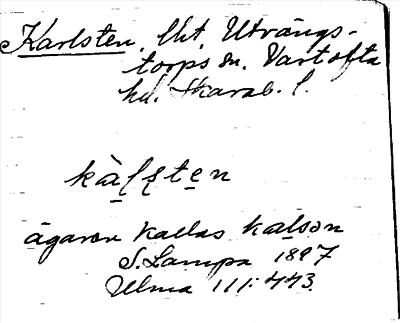 Karlsten, lht, Utvängs-
torps sn. Vartofta
hd. Skarab. l.
kàl̥s̥te̲n
ägaren kallas
S. Lampa 1897
Ulma 111:443.